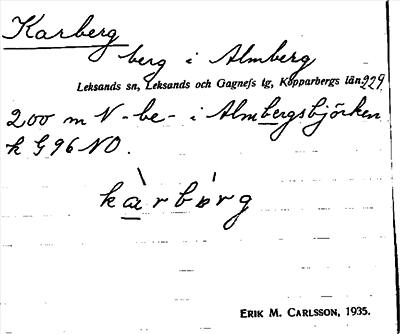 Karberg
berg i Almberg
Leksands sn, Leksands och Gagnefs tg, Kopparbergs län 229.
200 m N-be- i Almbergsbjörken
k G96NO.
kàrbərg
ERIK M. CARLSSON, 1935.